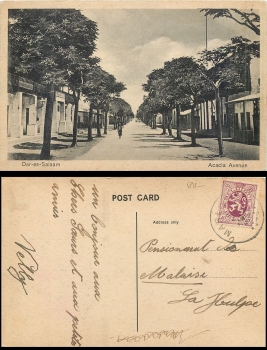 Dar-es-Salaam
Acacia Avenue
POST CARD
Address only
un bonjour aux
Chères Sœurs et aux petits
amis
Nelly
Pensionnat de
Malaise
La Hulpe